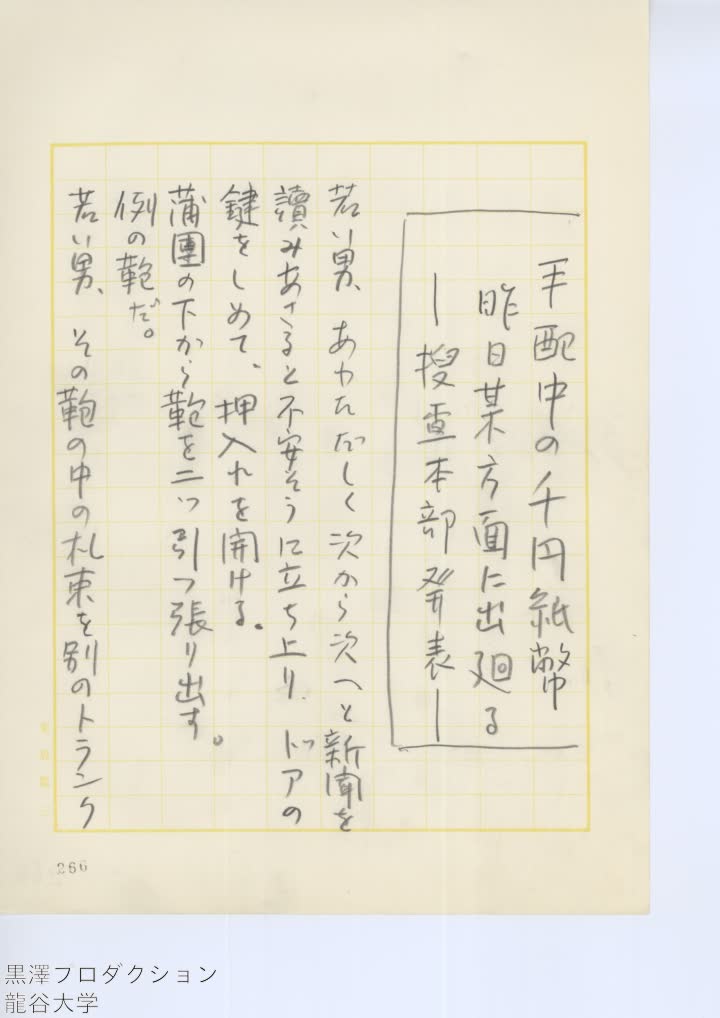 手配中の千円紙幣
昨日某方面に出廻る
―捜査本部発表―
若い男、あわただしく次から次へと新聞を
讀みあさると不安そうに立ち上り、ドアの
鍵をしめて、押入れを開ける。
蒲團の下から鞄を二つ引つ張り出す。
例の鞄だ。
若い男、その鞄の中の札束を別のトランク
266
黒澤プロダクション
龍谷大学